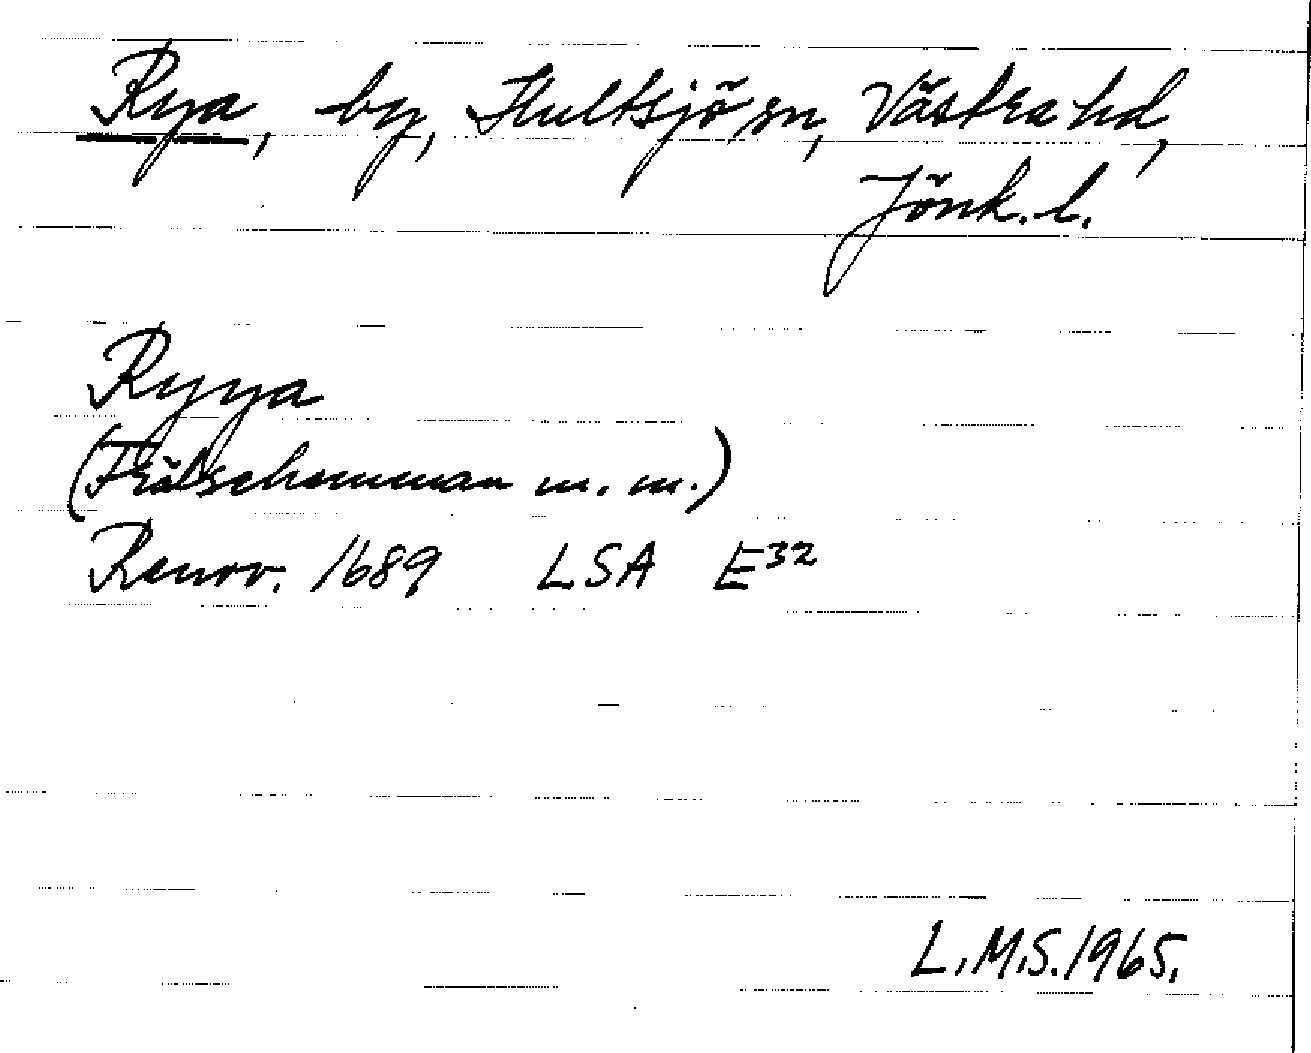 Rya, by, Hultsjö sn, Västra hd,
Jönk. l.
Ryya
(Frälsehemman m. m.)
Renov. 1689 LSA E32
L.M.S. 1965.